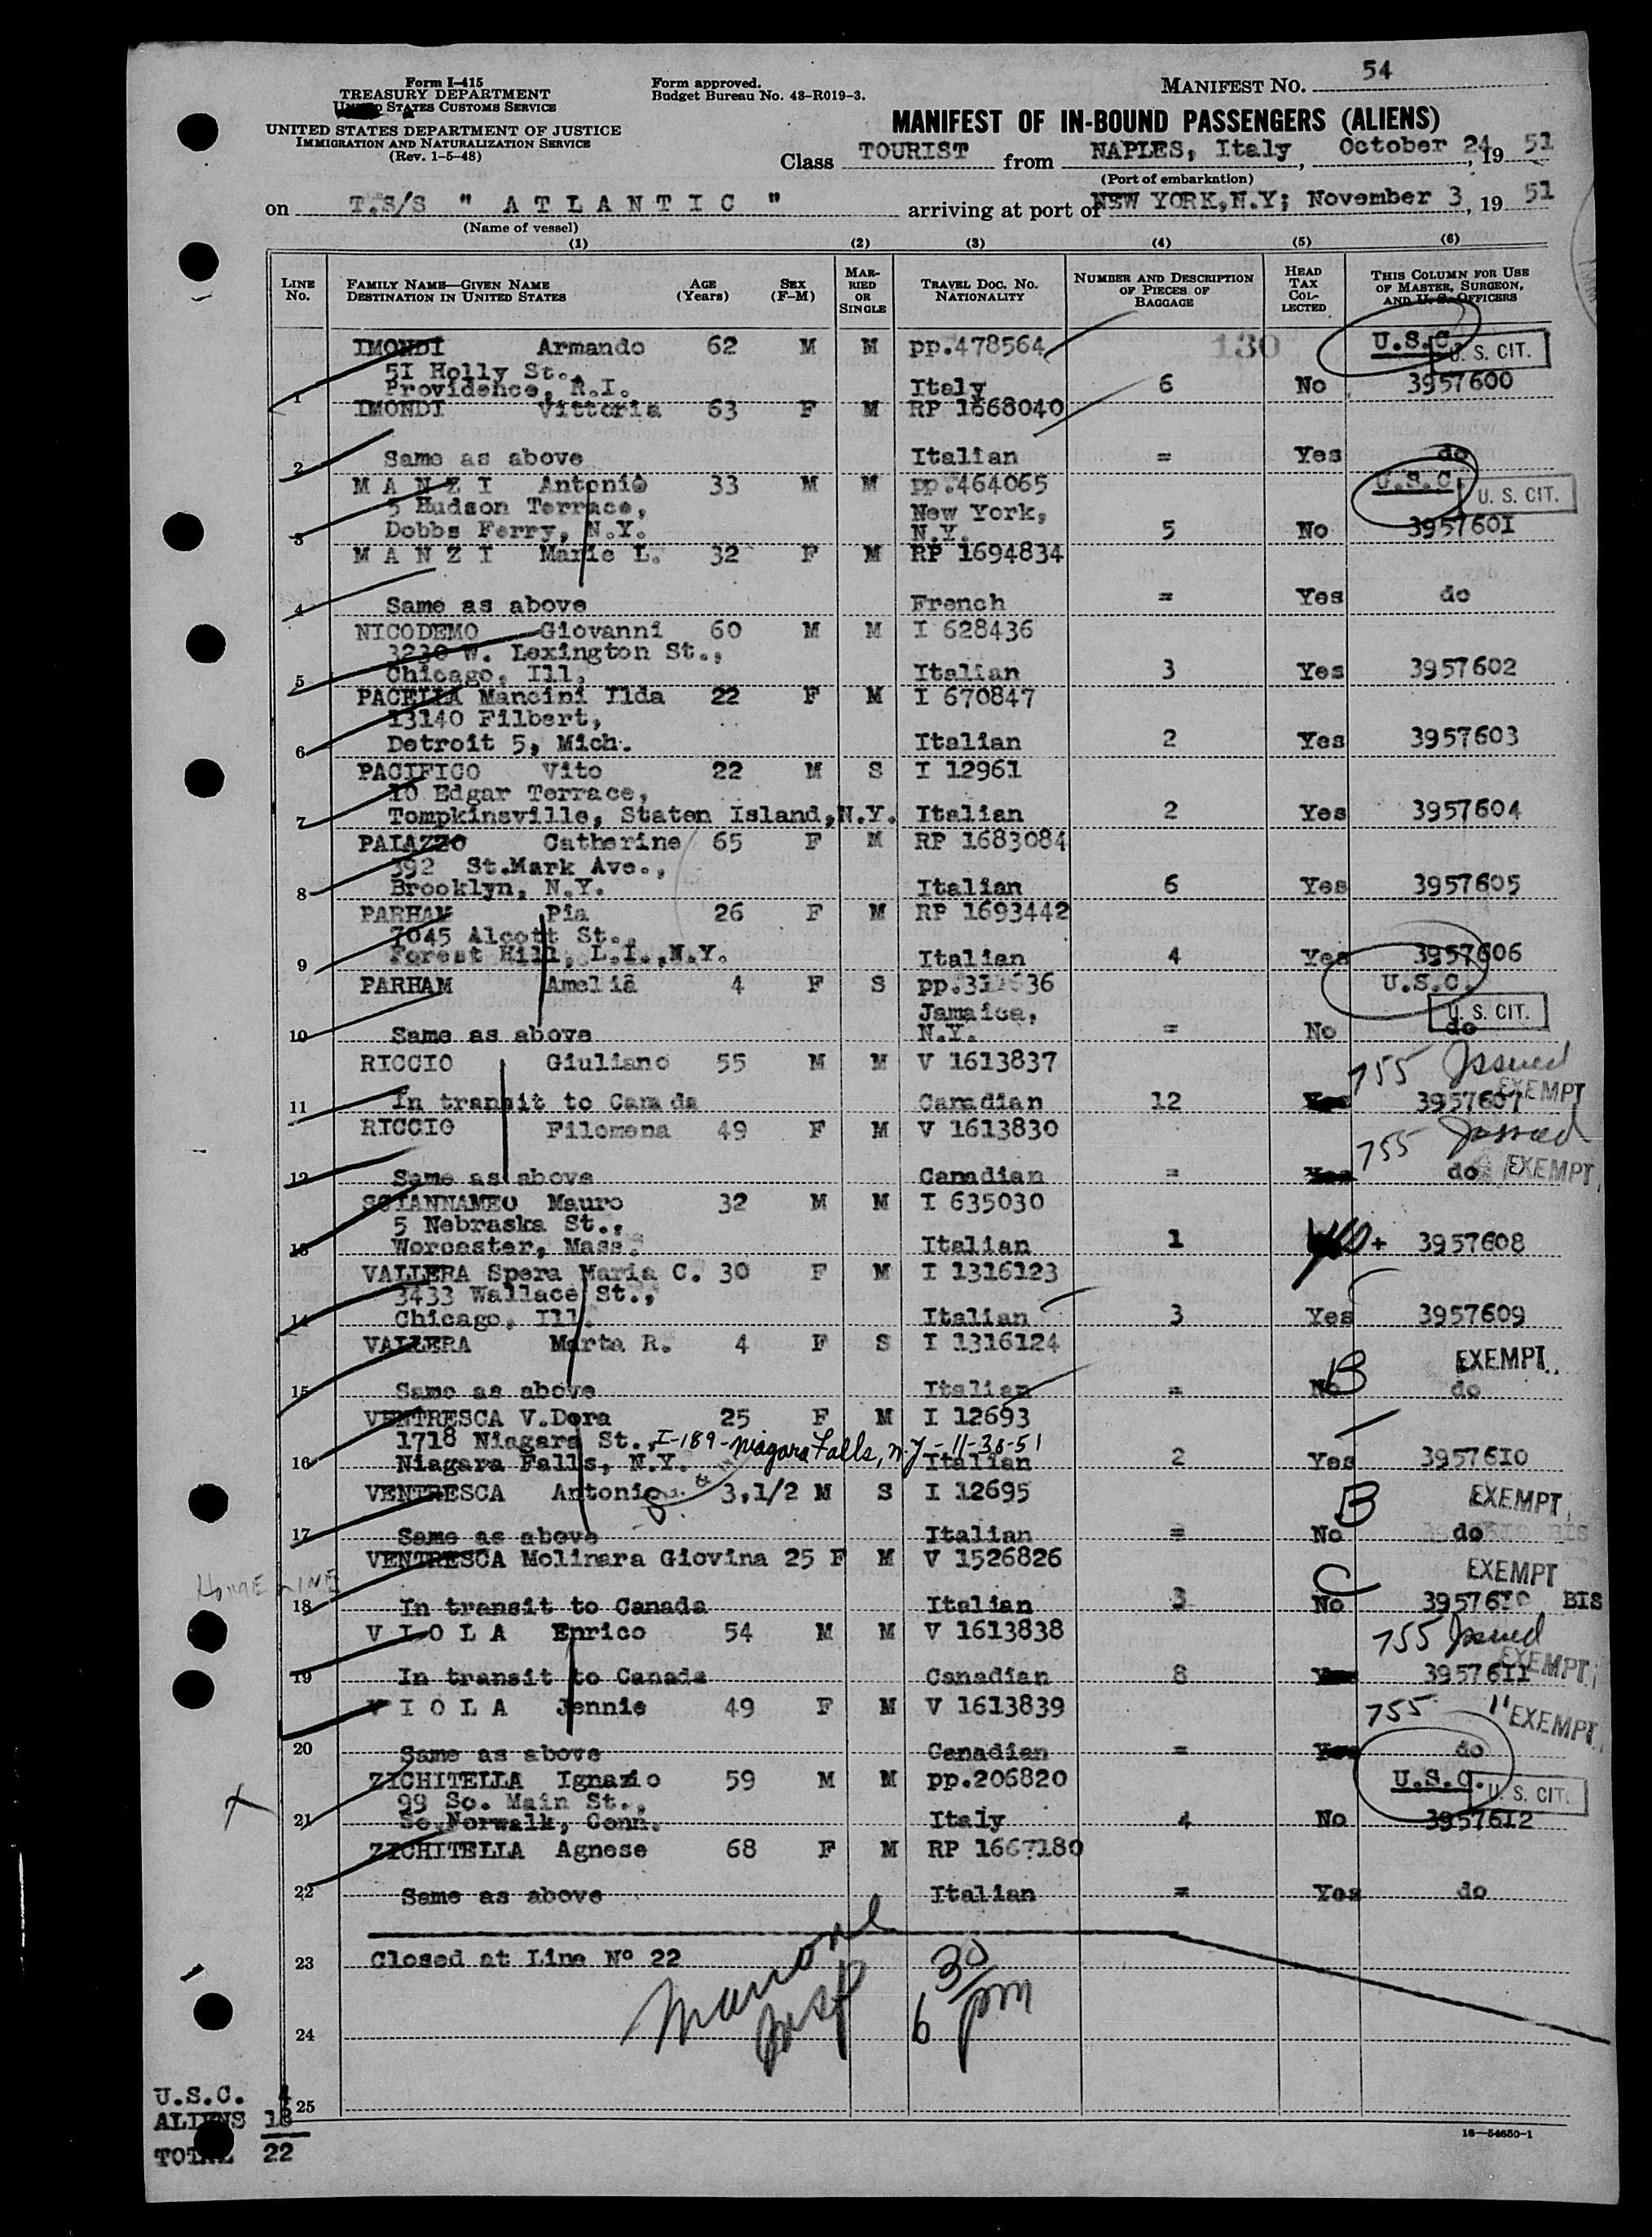 Form I-415
TREASURY DEPARTMENT
UNITED STATES CUSTOMS SERVICE
UNITED STATES DEPARTMENT OF JUSTICE
IMMIGRATION AND NATURALIZATION SERVICE
(Rev. 1-5-48)
Form approved.
Budget Bureau No. 43-R019-3.
MANIFEST NO. 54
MANIFEST OF IN-BOUND PASSENGERS (ALIENS)
Class TOURIST from NAPLES, Italy, October 24, 19 51
(Port of embarkation)
on T.S/S " A T L A N T I C " arriving at port of NEW YORK,N.Y; November 3, 19 51
(Name of vessel)
(1) (2) (3) (4) (5) (6)
LINE No. FAMILY NAME—GIVEN NAME DESTINATION IN UNITED STATES AGE (Years) SEX (F-M) MARRIED OR SINGLE TRAVEL DOC. NO. NATIONALITY NUMBER AND DESCRIPTION OF PIECES OF BAGGAGE HEAD TAX COLLECTED THIS COLUMN FOR USE OF MASTER, SURGEON, AND U. S. OFFICERS
IMONDI Armando 62 M M pp.478564 130 U.S.C. U. S. CIT.
51 Holly St.,
1 Providence, R.I. Italy 6 No 3957600
IMONDI Vittoria 63 F M RP 1668040
2 Same as above Italian = Yes do
M A N Z I Antonio 33 M M pp.464065 U.S.C. U. S. CIT.
5 Hudson Terrace, New York,
3 Dobbs Ferry, N.Y. N.Y. 5 No 3957601
M A N Z I Marie L. 32 F M RP 1694834
4 Same as above French = Yes do
NICODEMO Giovanni 60 M M I 628436
3230 W. Lexington St.,
5 Chicago, Ill. Italian 3 Yes 3957602
PACELLA Mancini Ilda 22 F M I 670847
13140 Filbert,
6 Detroit 5, Mich. Italian 2 Yes 3957603
PACIFICO Vito 22 M S I 12961
10 Edgar Terrace,
7 Tompkinsville, Staten Island,N.Y. Italian 2 Yes 3957604
PALAZZO Catherine 65 F M RP 1683084
392 St.Mark Ave.,
8 Brooklyn, N.Y. Italian 6 Yes 3957605
PARHAM Pia 26 F M RP 1693442
7045 Alcott St.,
9 Forest Hill, L.I.,N.Y. Italian 4 Yes 3957606
PARHAM Amelia 4 F S U.S.C.
Jamaica, U. S. CIT.
10 Same as above N.Y. = No do
RICCIO Giuliano 55 M M V 1613837 755 Issued
11 In transit to Canada Canadian 12 Yes 3957607 EXEMPT
RICCIO Filomena 49 F M V 1613830 755 Issued
12 Same as above Canadian = Yes do EXEMPT
SCIANNAMEO Mauro 32 M M I 635030
5 Nebraska St.,
13 Worcester, Mass. Italian 1 3957608
VALLERA Spera Maria C. 30 F M I 1316123
3433 Wallace St.,
14 Chicago, Ill. Italian 3 Yes 3957609
VALLERA Marta R. 4 F S I 1316124 EXEMPT
15 Same as above Italian = No B do
VENTRESCA V.Dora 25 F M I 12693
1718 Niagara St., I-189-Niagara Falls, N.Y-11-38-51
16 Niagara Falls, N.Y. Italian 2 Yes 3957610
VENTRESCA Antonio 3,1/2 M S I 12695 B EXEMPT
17 Same as above Italian = No do
VENTRESCA Molinara Giovina 25 F M V 1526826 EXEMPT
HOME LINE
18 In transit to Canada Italian 3 C No 3957610 BIS
V I O L A Enrico 54 M M V 1613838 755 Issued
19 In transit to Canada Canadian 8 Yes 3957611 EXEMPT
V I O L A Jennie 49 F M V 1613839 755 " EXEMPT
20 Same as above Canadian = Yes do
ZICHITELLA Ignazio 59 M M pp.206820 U.S.C. U. S. CIT.
99 So. Main St.,
21 So.Norwalk, Conn. Italy 4 No 3957612
ZICHITELLA Agnese 68 F M RP 1667180
22 Same as above Italian = Yes do
23 Closed at Line Nº 22
Insp 6 30 pm
24
25
U.S.C. 4
ALIENS 18
TOTAL 22
16—54650-1